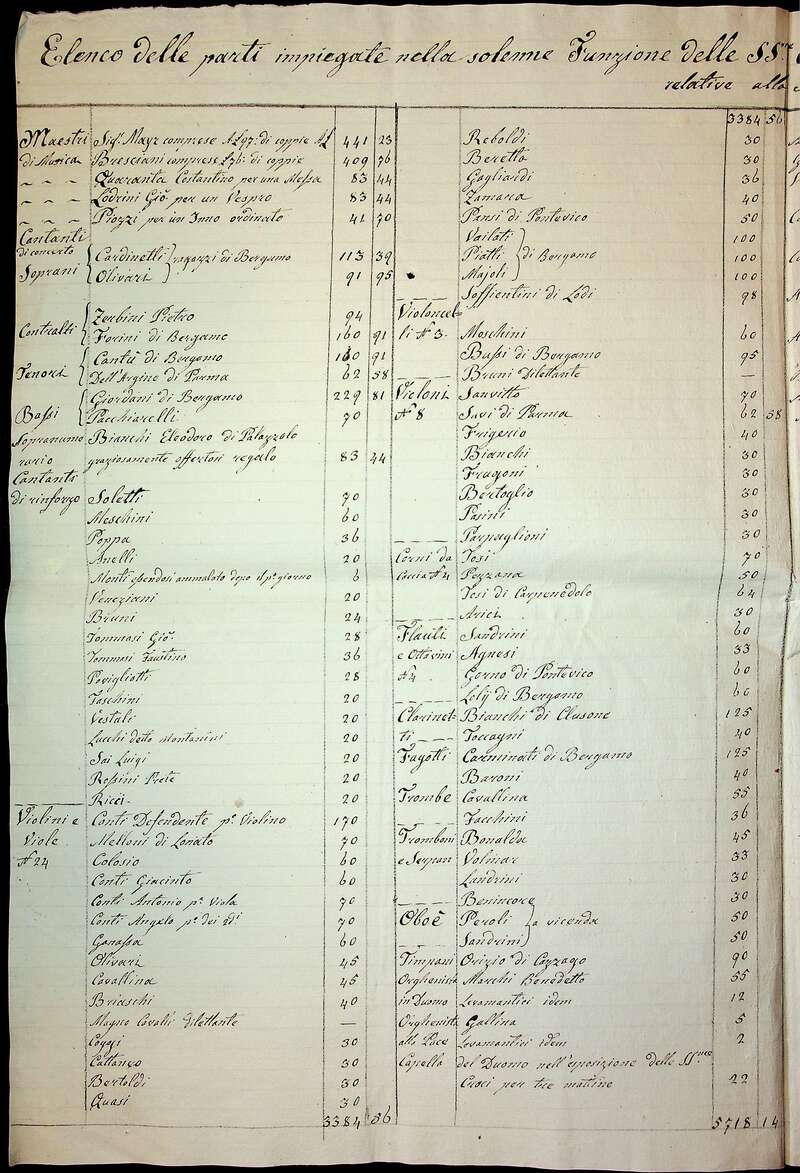 Elenco delle parti impiegate nella solenne Funzione delle SS.me
relative alla
Maestri Sigr. Mayr comprese £ 97. di coppie 441 23
di Musica Bresciani comprese £ 76. di coppie 409 76
– – – Quaranta Costantino per una Messa 83 44
– – – Lodrini Gio. per un Vespro 83 44
– – – Piozzi per un Inno ordinato 41 70
Cantanti
di concerto Cardinetti ragazzi di Bergamo 113 39
Soprani Olivari 91 95
Zerbini Pietro 94
Contralti Forini di Bergamo 160 91
Cantù di Bergamo 160 91
Tenori Dell'Argine di Parma 62 58
Giordani di Bergamo 229 81
Bassi Pacchiarelli 70
Sopranume Bianchi Eleodoro di Palazzolo
rario graziosamente offertosi regalo 83 44
Cantanti
di rinforzo Soletti 70
Meschini 60
Poppa 36
Anelli 20
Monti essendosi ammalato dopo il po. giorno 6
Veneziani 20
Bruni 24
Tommasi Gio. 28
Tommasi Faustino 36
Povigliotti 28
Toschini 20
Vestali 20
Lucchi detto Montanini 20
Sai Luigi 20
Rossini Prete 20
Ricci 20
Violini e Conti Defendente po. Violino 170
Viole Melloni di Lonato 70
N. 24 Colosio 60
Conti Giacinto 60
Conti Antonio pa. Viola 70
Conti Angelo po. dei 2di 70
Garassa 60
Olivari 45
Cavallina 45
Briaschi 40
Magno Cavalli dilettante —
Coggi 30
Cattaneo 30
Bertoldi 30
Quasi 30
3384 56
3384 56
Reboldi 30
Beretta 30
Gagliardi 36
Zamara 40
Pansi di Pontevico 50
Vailati 100
Piatti di Bergamo 100
Majoli 100
Soffientini di Lodi 98
Violoncel
li N. 3. Moschini 60
Bassi di Bergamo 95
Bruni Dilettante —
Violoni Sanvitto 70
N. 8 Savi di Parma 62 58
Frigerio 40
Bianchi 30
Frugoni 30
Bertoglio 30
Pasini 30
Parpaglioni 30
Corni da Tosi 70
Caccia N. 4 Pezzana 50
Tosi di Carpenedolo 64
Arici 30
Flauti Sandrini 60
e Ottavini Agnesi 33
N. 4 Gorno di Pontevico 60
Loly di Bergamo 60
Clarinet- Bianchi di Clusone 125
ti Toccagni 40
Fagotti Carminati di Bergamo 125
Baroni 40
Trombe Cavallina 55
Facchini 36
Tromboni Bonalda 45
e Serpan Volmar 33
Landrini 30
Benincore 30
Oboè Peroli a vicenda 50
Sandrini 50
Timpani Orizio di Cazzago 90
Orghenista Marchi Benedetto 55
in Duomo Levamantici idem 12
Orghenista Gallina 5
alla Pace Levamantici idem 2
Capella del Duomo nell'esposizione delle SS.me
Croci per tre mattine 22
5718 14